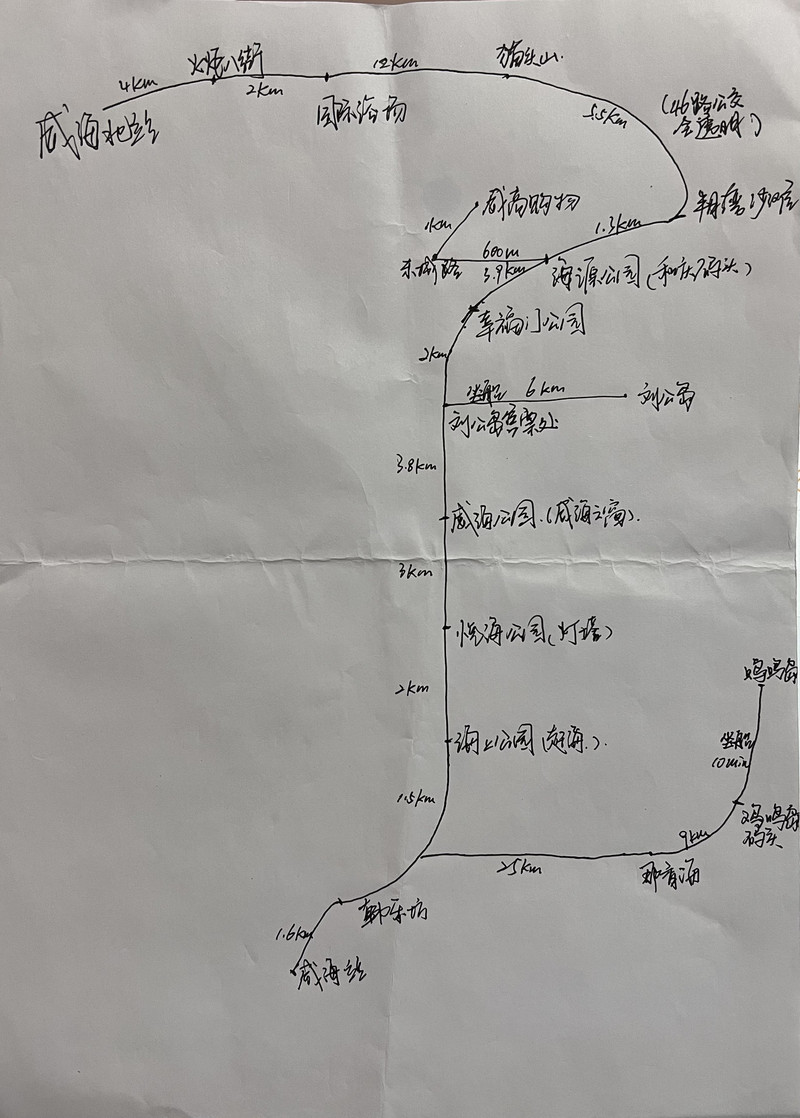 4km
火炬八街
2km
12km
猫头山
威海北站
国际浴场
5.5km
(46路公交
全透明)
1km
威高购物
1.3km
半月湾沙滩
600m
3.9km
海源公园(和庆码头)
幸福门公园
2km
坐船 6km
刘公岛
刘公岛售票处
3.8km
威海公园.(威海之窗).
3km
悦海公园(灯塔)
2km
鸡鸣岛
海上公园(赶海.)
坐船
10min
1.5km
鸡鸣岛
码头
9km
25km
那香海
韩乐坊
1.6km
威海站